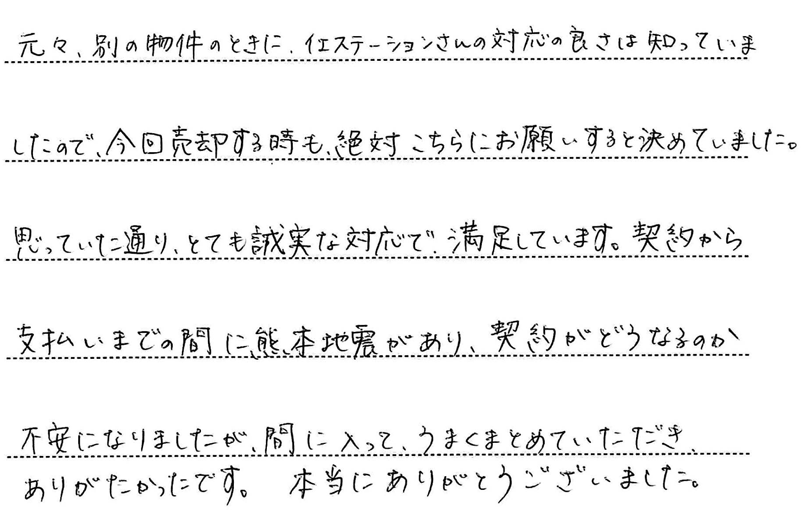 元々、別の物件のときに、イエステーションさんの対応の良さは知っていま
したので、今回売却する時も、絶対こちらにお願いすると決めていました。
思っていた通り、とても誠実な対応で、満足しています。契約から
支払いまでの間に、熊本地震があり、契約がどうなるのか
不安になりましたが、間に入って、うまくまとめていただき、
ありがたかったです。 本当にありがとうございました。